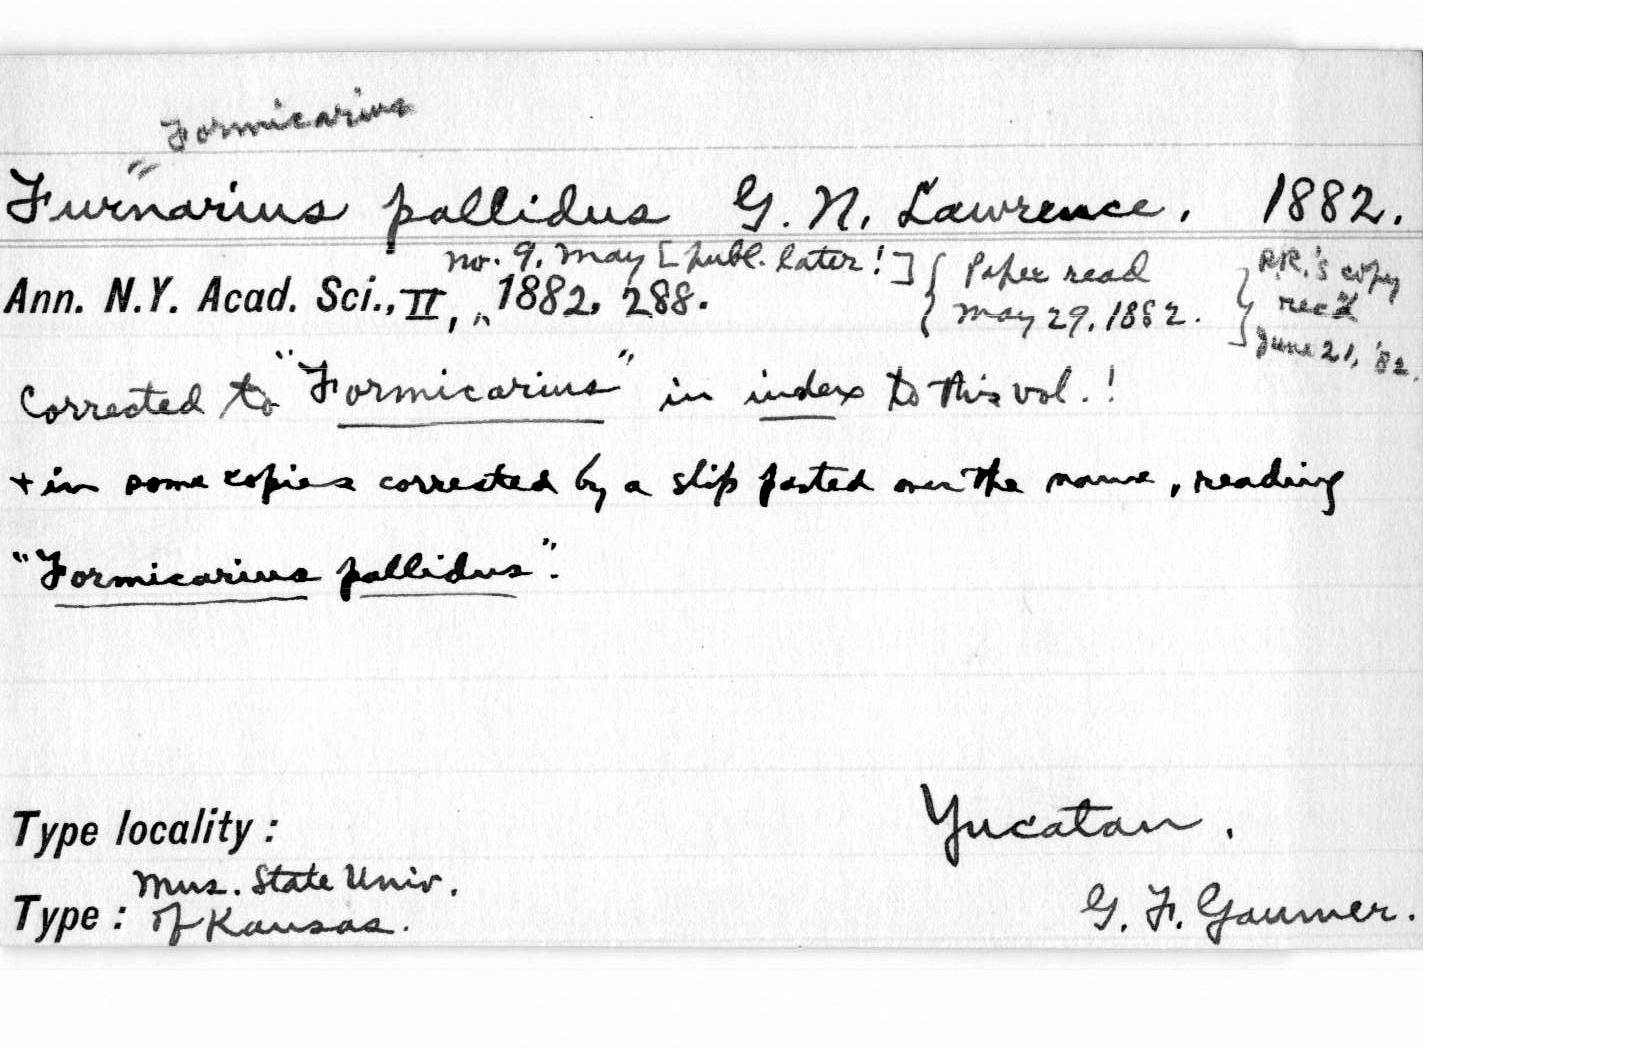 = Formicarius
Furnarius pallidus G. N. Lawrence. 1882.
no. 9, May [publ. later!] { Paper read } R.R.'s copy
Ann. N.Y. Acad. Sci., II, ^ 1882, 288. { May 29, 1882. } rec'd
June 21, '82.
Corrected to "Formicarius" in index to this vol.!
+ in some copies corrected by a slip pasted over the name, reading
"Formicarius pallidus".
Type locality: Yucatan.
Mus. State Univ.
Type: of Kansas. G. F. Gaumer.